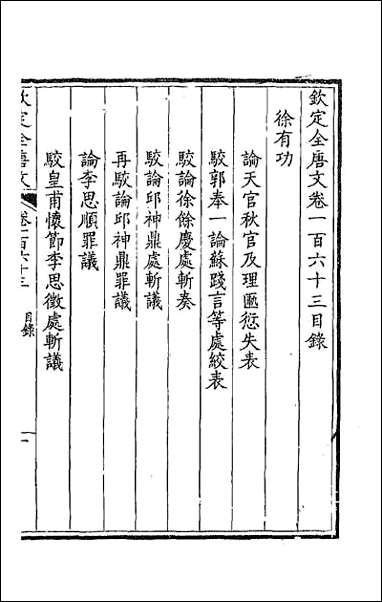 欽定全唐文卷一百六十三目錄
徐有功
論天官秋官及理匭愆失表
駮郭奉一論蘇踐言等處絞表
駮論徐餘慶處斬奏
駮論邱神鼎處斬議
再駮論邱神鼎罪議
論李思順罪議
駮皇甫懷節李思徵處斬議
欽定全唐文 卷一百六十三 目錄 一